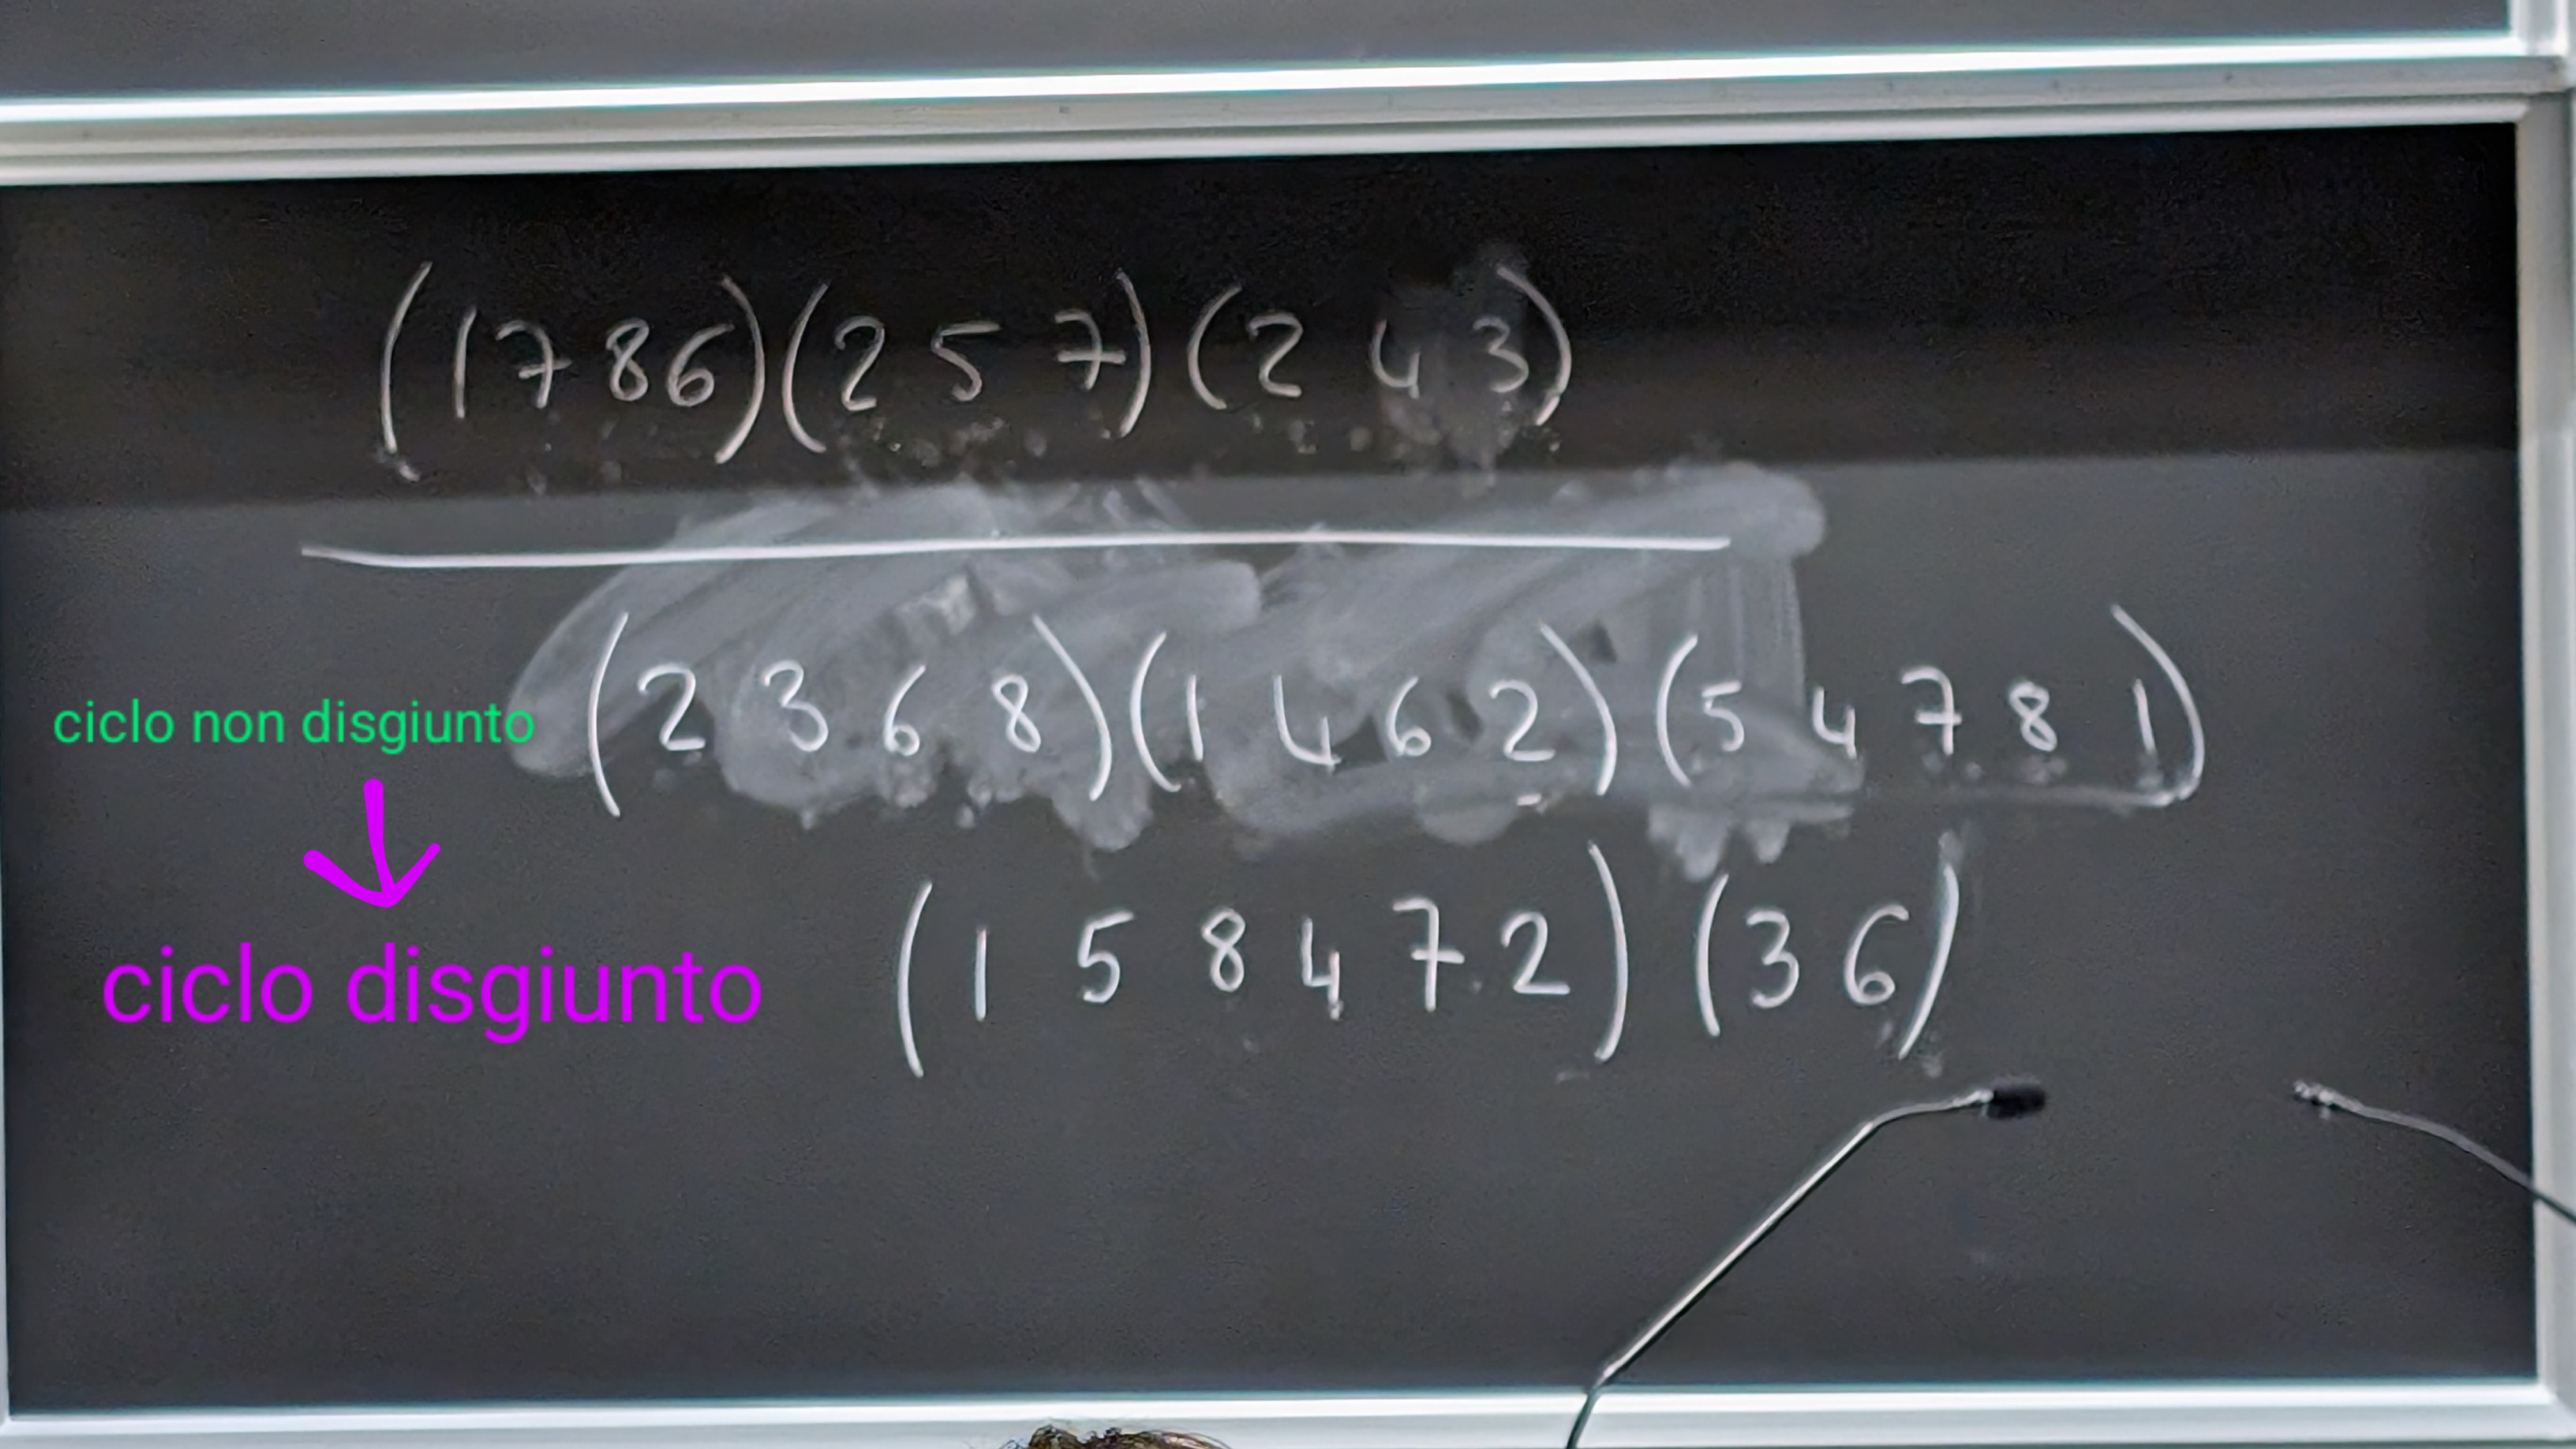 (1 7 8 6)(2 5 7)(2 4 3)
ciclo non disgiunto (2 3 6 8)(1 4 6 2)(5 4 7 8 1)
ciclo disgiunto (1 5 8 4 7 2)(3 6)